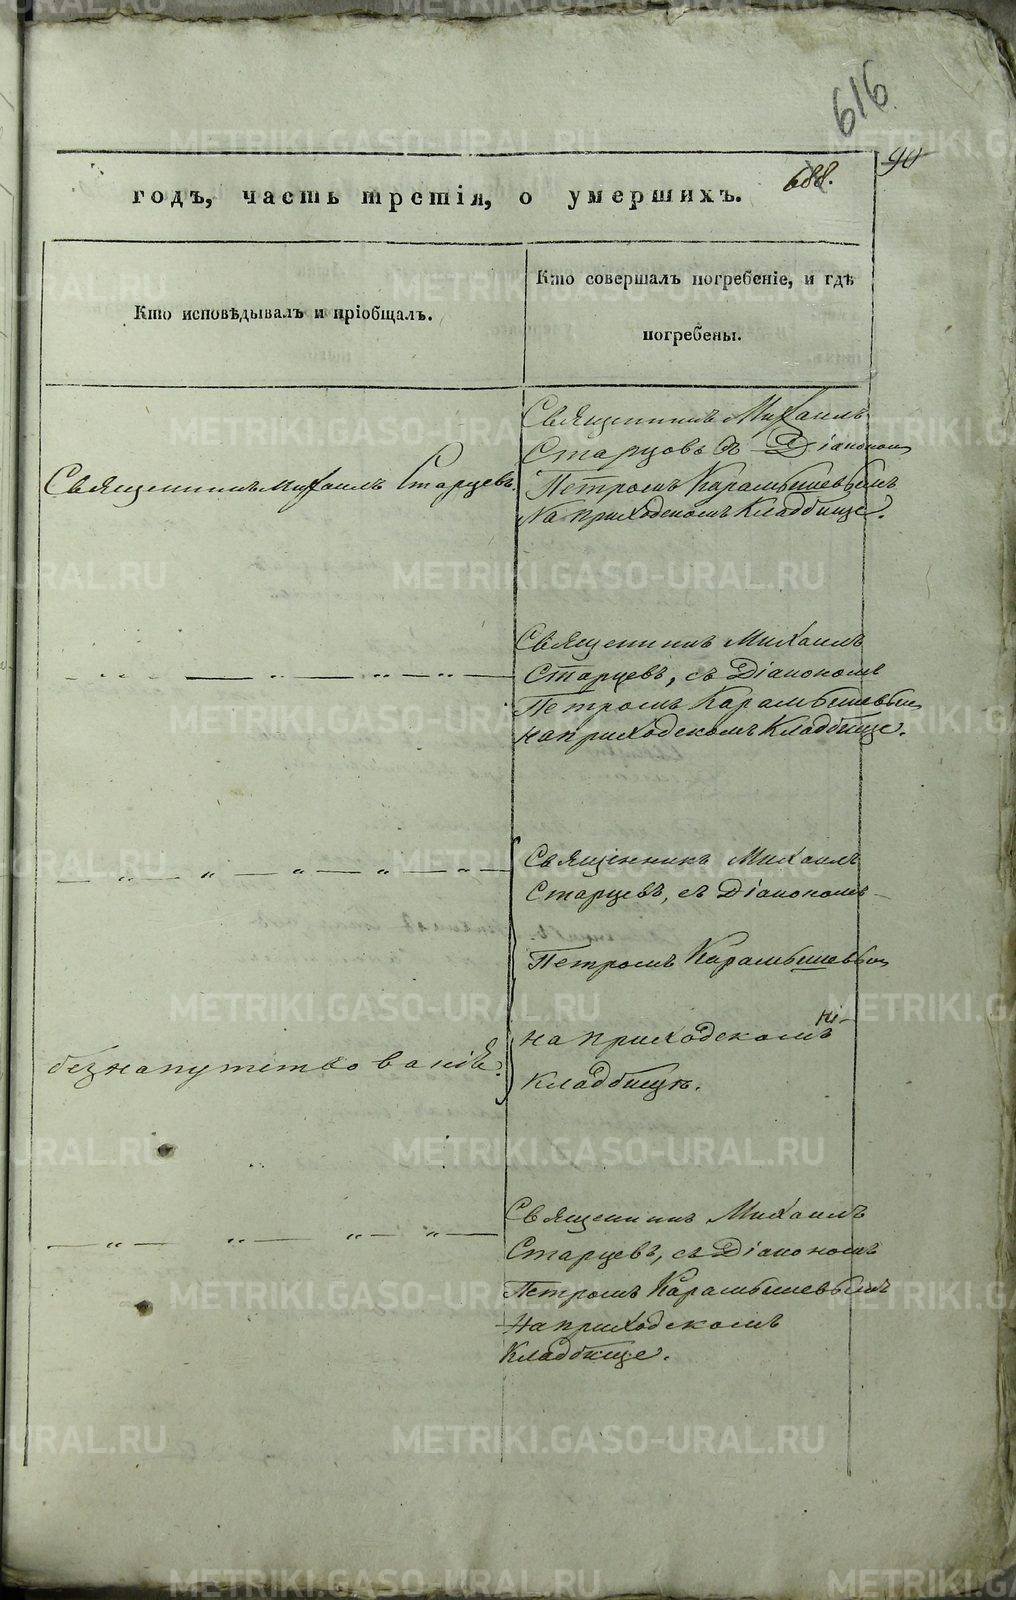 616
90
688.
годъ, часть третія, о умершихъ.
Кто исповѣдывалъ и пріобщалъ.
Кто совершалъ погребеніе, и гдѣ
погребены.
Священникъ Михаилъ Старцевъ.
Священникъ Михаилъ
Старцовъ съ Діакономъ
Петромъ Карамышевымъ
На приходскомъ Кладбище.
Священникъ Михаилъ
Старцевъ, съ Діакономъ
Петромъ Карамышевым
на приходскомъ Кладбище.
Священникъ Михаилъ
Старцевъ, съ Діакономъ
Петромъ Карамышевым
безнапутствованія.
на приходскомъ
кладбищѣ.
Священникъ Михаилъ
Старцевъ, съ Діакономъ
Петромъ Карамышевымъ
На приходскомъ
Кладбище.
METRIKI.GASO-URAL.RU